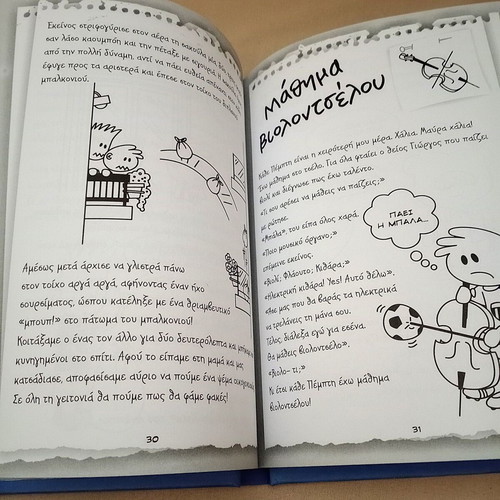 Εκείνος στριφογύρισε στον αέρα τη σακούλα μία, δύο
σαν λάσο καουμπόη και την πέταξε με σιγουριά. Η
από την πολλή δύναμη, αντί να πάει ευθεία απέναντι,
έφυγε προς τα αριστερά και έπεσε στον τοίχο του διπλανού
μπαλκονιού.
Αμέσως μετά άρχισε να γλιστρά πάνω
στον τοίχο αργά αργά, αφήνοντας έναν ήχο
σουρσίματος, ώσπου κατέληξε με ένα θριαμβευτικό
«μπουπ!» στο πάτωμα του μπαλκονιού!
Κοιτάξαμε ο ένας τον άλλο για δύο δευτερόλεπτα και
κυνηγημένοι στο σπίτι. Αφού το είπαμε στη μαμά και μας
κατσάδιασε, αποφασίσαμε αύριο να πούμε ένα ψέμα
Σε όλη τη γειτονιά θα πούμε πως θα φάμε φακές!
30
Μάθημα
βιολοντσέλου
Κάθε Πέμπτη είναι η χειρότερή μου μέρα. Χάλια. Μαύρα χάλια!
Έχω μάθημα στο τσέλο. Για όλα φταίει ο θείος Γιώργος που παίζει
βιολί και διέγνωσε πως έχω ταλέντο.
«Τι σου αρέσει να μάθεις να παίζεις;»
με ρώτησε.
«Μπάλα», του είπα όλος χαρά.
«Ποιο μουσικό όργανο;»
επέμεινε εκείνος.
«Βιολί; Φλάουτο; Κιθάρα;»
«Ηλεκτρική κιθάρα! Yes! Αυτό θέλω».
«Άσε μας που θα βαράς τα ηλεκτρικά
να τρελάνεις τη μάνα σου.
Τέλος, διάλεξα εγώ για εσένα.
Θα μάθεις βιολοντσέλο».
«Βιολο- τι;»
Κι έτσι κάθε Πέμπτη έχω μάθημα
βιολοντσέλου!
ΠΑΕΙ
Η ΜΠΑΛΑ...
31